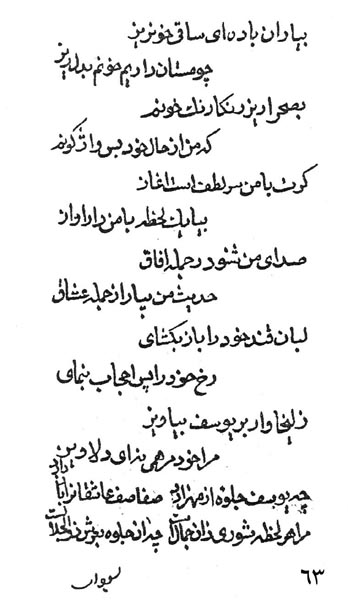 بیا ران باده‌ای ساقی خونریز
چو مستان داریم خونم بدل ریز
بصحرا ریز رنکارنك خونم
که من از حال خود بس واژکونم
کرت با من سر لطف است اغاز
بیا یك لحظه با من دار اواز
صدای من شنو در جمله افاق
حدیث من بیار از جمله عشاق
لبان قند خود را باز بکشای
رخ خود را پس احجاب بنمای
زلیخا وار بر یوسف بیاویز
مرا خود مرهمی بنه ای دلاویز
چه یوسف جلوه از مهر صفا صف عاشقان
مرا هر لحظه شوری زان جمالت چه زان جلوه بعرش ذوالجلالت
٦٣